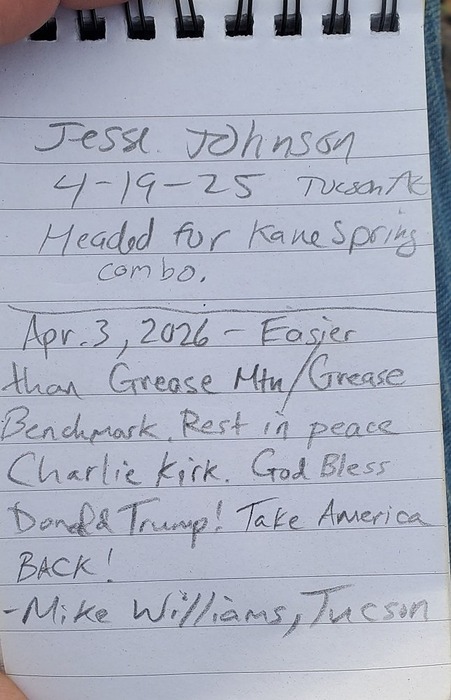 Jesse Johnson
4-19-25 Tucson AZ
Headed for Kane Spring
combo.
Apr. 3, 2026 - Easier
than Grease Mtn/Grease
Benchmark. Rest in peace
Charlie Kirk. God Bless
Donald Trump! Take America
BACK!
-Mike Williams, Tucson